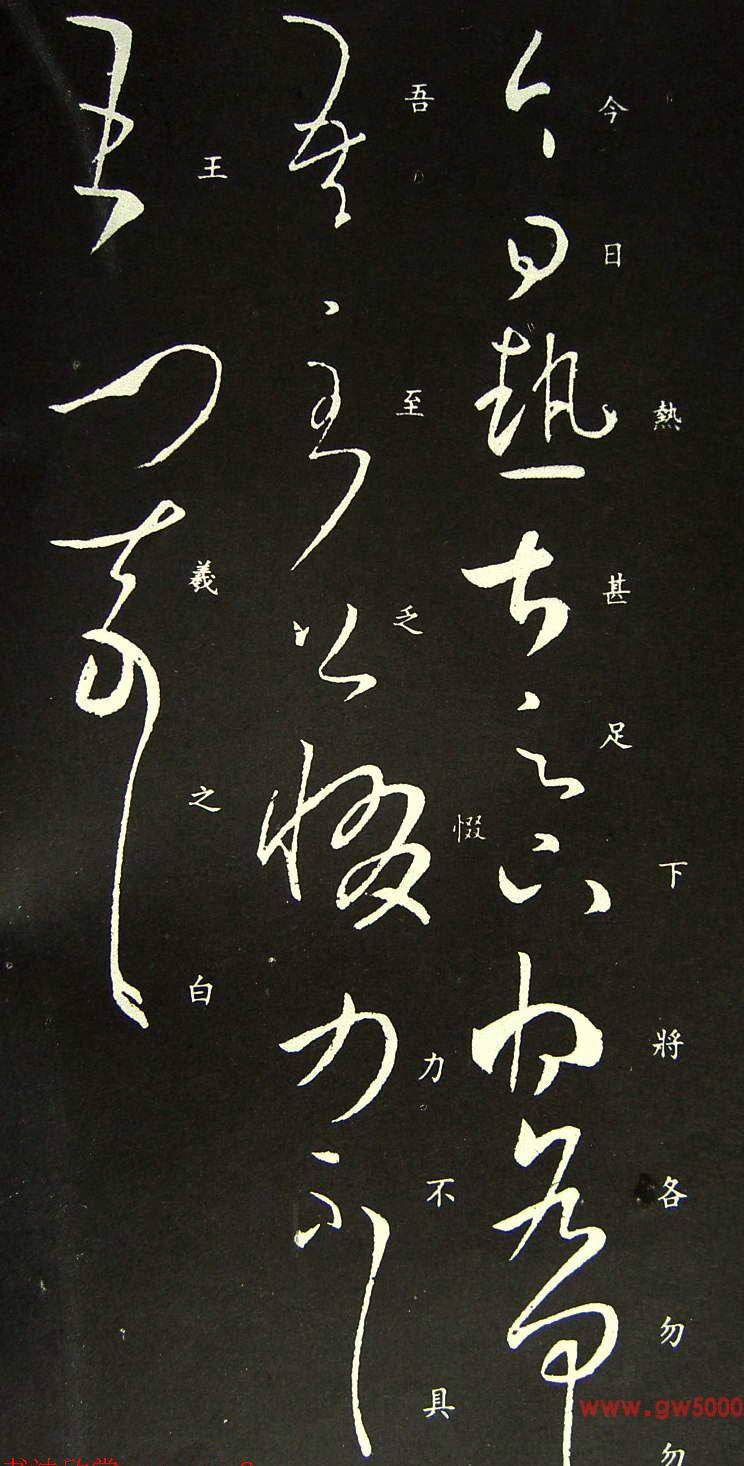 今日熱甚足下將各勿勿
吾至乏惙力不具
王羲之白
www.gw5000